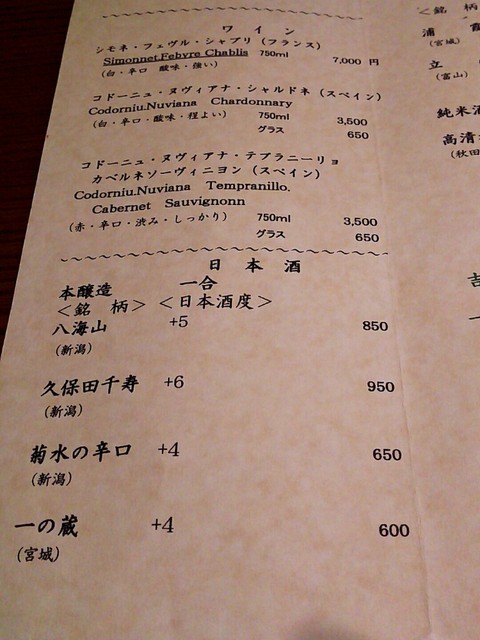 ワイン
シモネ・フェヴル・シャブリ（フランス）
Simonnet.Febyre Chablis 750ml 7,000 円
（白・辛口 酸味・強い）
コドーニュ・ヌヴィアナ・シャルドネ（スペイン）
Codorniu.Nuviana Chardonnary
（白・辛口・酸味・程よい） 750ml 3,500
グラス 650
コドーニュ・ヌヴィアナ・テプラニーリョ
カベルネソーヴィニヨン（スペイン）
Codorniu.Nuviana Tempranillo.
Cabernet Sauvignonn
（赤・辛口・渋み・しっかり） 750ml 3,500
グラス 650
日本酒
本醸造 一合
＜銘 柄＞ ＜日本酒度＞
八海山 +5 850
（新潟）
久保田千寿 +6 950
（新潟）
菊水の辛口 +4 650
（新潟）
一の蔵 +4 600
（宮城）
＜銘 柄
浦 霞
（宮城）
立
（富山）
純米酒
高清
（秋田